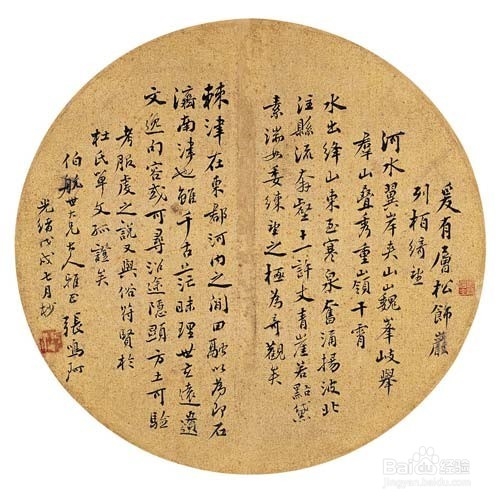 爰有層松飾巖
列栢綺望
河水翼岸夾山巍峯岐舉
羣山疊秀重嶺干霄
水出絳山東寒泉奮涌揚波北
注縣流奔壑十一許丈青崖若點黛
素湍如委練望之極為奇觀矣
棘津在東郡河內之間田融以為即石
濟南津也雖千古茫昧理世玄遠遺
文逸句容或可尋沿途隱顯方土可驗
考服虔之說又與俗符賢於
杜氏單文孤證矣
伯世大兄大人雅正 張鳴珂
光緒戊戌七月抄
Baidu经验
jingyan.baidu.com